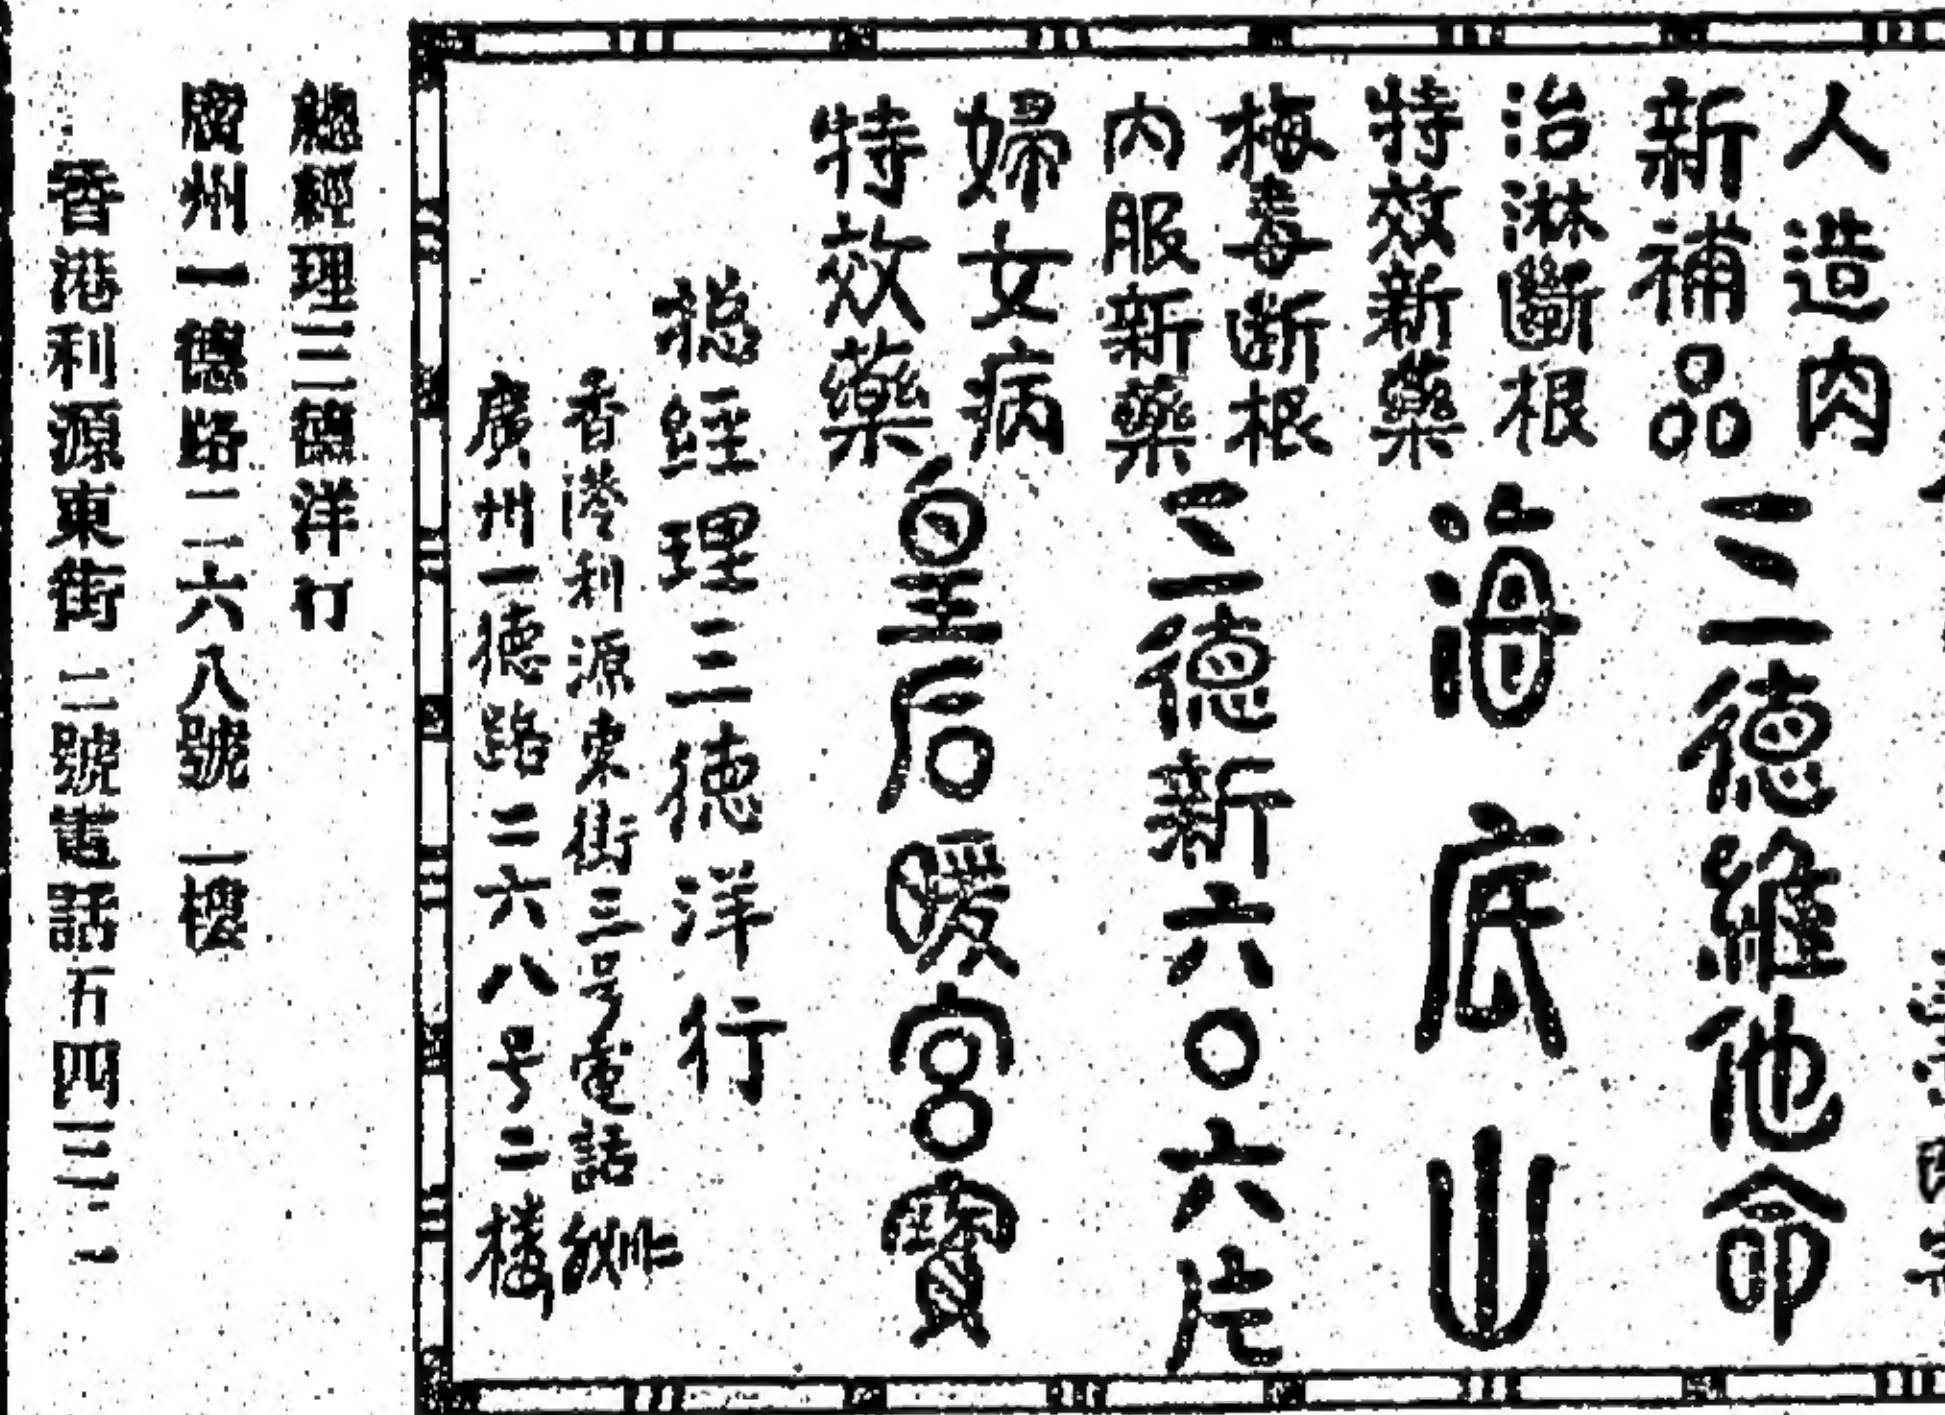 人造肉
新補品
三德維他命
治淋斷根
特效新藥
海底山
梅毒断根
内服新藥
三德新六〇六片
婦女病
特效藥
皇后暖宮寶
総経理三德洋行
香港利源東街三号電話
廣州一德路二六八号二樓
總經理三德洋行
廣州一德路二六八號二樓
香港利源東街三號電話五四三